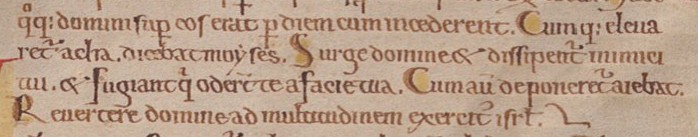 qq: domini sup̄ eos erat p̱ diem cum incederent. Cumq; eleua
ret᷑ archa. dicebat moẏses. Surge domine & dissipent᷑ inimici
tui. & fugiant q̇ oder̄t te a facie tua. Cum aū deponeret᷑ aiebat.
Reuertere domine ad multitudinem exercit᷑ isrł.